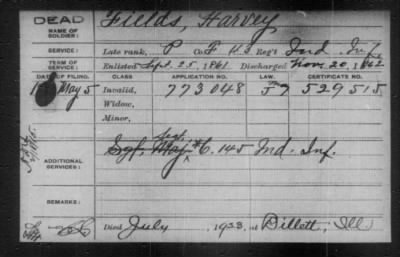 DEAD
NAME OF SOLDIER: Fields, Harvey
SERVICE: Late rank, P Co. F, 43 Reg't Ind. Inf.
TERM OF SERVICE: Enlisted Sept. 25, 1861 Discharged Nov. 20, 1862
DATE OF FILING. CLASS APPLICATION NO. LAW. CERTIFICATE NO.
May 5 Invalid, 773048 529515
Widow,
Minor,
Sgt.
ADDITIONAL SERVICES: Sgt. Maj. 145 Ind. Inf.
REMARKS:
Died July 1923, at Ill.